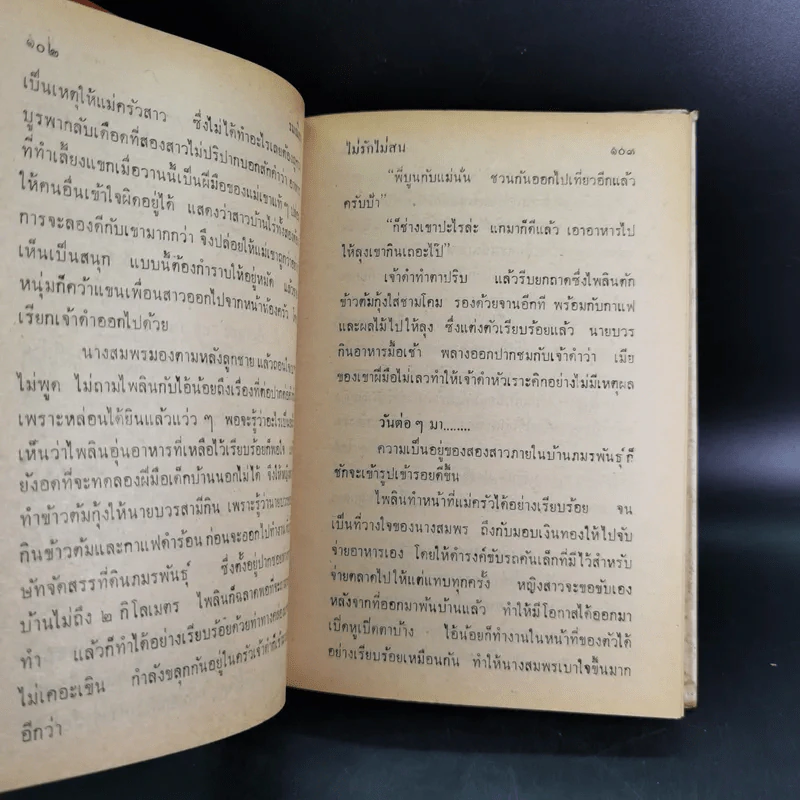 ๑๐๒
เป็นเหตุให้แม่ครัวสาว ซึ่งไม่ได้ทำอะไรเลยต้อง
บูรพากลับเดือดที่สองสาวไม่ปริปากบอกสักคำว่า
ที่ทำเลี้ยงแขกเมื่อวานนี้เป็นฝีมือของแม่เขาแท้ๆ
ให้คนอื่นเข้าใจผิดอยู่ได้ แสดงว่าสาวบ้านไร่ทั้งสอง
การจะลองดีกับเขามากกว่า จึงปล่อยให้แม่เขาถูก
เห็นเป็นสนุก แบบนี้ต้องกำราบให้อยู่หมัด แล้ว
หนุ่มก็คว้าแขนเพื่อนสาวออกไปจากหน้าห้องครัว
เรียกเจ้าดำออกไปด้วย
นางสมพรมองตามหลังลูกชาย แล้วถอนใจ
ไม่พูด ไม่ถามไพลินกับไอ้น้อยถึงเรื่องที่ต่อปาก
เพราะหล่อนได้ยินแล้วแว่ว ๆ พอจะรู้ว่าอะไรเป็น
เห็นว่าไพลินอุ่นอาหารที่เหลือไว้เรียบร้อยก็พอใจ
ยังอดที่จะทดลองฝีมือเด็กบ้านนอกไม่ได้ จึงให้
ทำข้าวต้มกุ้งให้นายบวรสามีกิน เพราะรู้ว่านายบวร
กินข้าวต้มและกาแฟดำร้อน ก่อนจะออกไปทำงาน
ษัทจัดสรรที่ดินภมรพันธุ์ ซึ่งตั้งอยู่ปากซอย
บ้านไม่ถึง ๒ กิโลเมตร ไพลินก็ฉลาดพอที่จะ
ทำ แล้วก็ทำได้อย่างเรียบร้อยด้วยท่าทาง
ไม่เคอะเขิน กำลังขลุกกันอยู่ในครัวเจ้าดำก็
อีกว่า
ไม่รักไม่สน
๑๐๓
“พี่บูนกับแม่นั่น ชวนกันออกไปเที่ยวอีกแล้ว
ครับป้า”
“ก็ช่างเขาปะไรล่ะ แกมาก็ดีแล้ว เอาอาหารไป
ให้ลุงเขากินเถอะไป๊”
เจ้าดำทำตาปริบ แล้วรีบยกถาดซึ่งไพลินตัก
ข้าวต้มกุ้งใส่ชามโคม รองด้วยจานอีกที พร้อมกับกาแฟ
และผลไม้ไปให้ลุง ซึ่งแต่งตัวเรียบร้อยแล้ว นายบวร
กินอาหารมื้อเช้า พลางออกปากชมกับเจ้าดำว่า เมีย
ของเขาฝีมือไม่เลวทำให้เจ้าดำหัวเราะคิกอย่างไม่มีเหตุผล
วันต่อ ๆ มา........
ความเป็นอยู่ของสองสาวภายในบ้านภมรพันธุ์ก็
ชักจะเข้ารูปเข้ารอยดีขึ้น
ไพลินทำหน้าที่แม่ครัวได้อย่างเรียบร้อย จน
เป็นที่วางใจของนางสมพร ถึงกับมอบเงินทองให้ไปจับ
จ่ายอาหารเอง โดยให้ดำรงค์ขับรถคันเล็กที่มีไว้สำหรับ
จ่ายตลาดไปให้แต่แทบทุกครั้ง หญิงสาวจะขอขับเอง
หลังจากที่ออกมาพ้นบ้านแล้ว ทำให้มีโอกาสได้ออกมา
เปิดหูเปิดตาบ้าง ไอ้น้อยก็ทำงานในหน้าที่ของตัวได้
อย่างเรียบร้อยเหมือนกัน ทำให้นางสมพรเบาใจขึ้นมาก